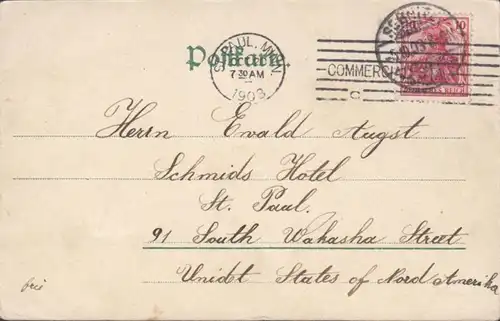 Postkarte
ST. PAUL, MINN.
7 30 AM
1903
COMMERCI
10
Herrn Ewald Augst
Schmids Hotel
St. Paul.
91 South Wakasha Street
Unidet States of Nord Amerika